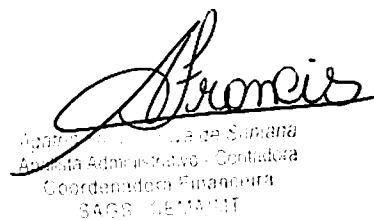 Francis
de Santana
Analista Administrativo - Contadora
Coordenadora Financeira
SAGS